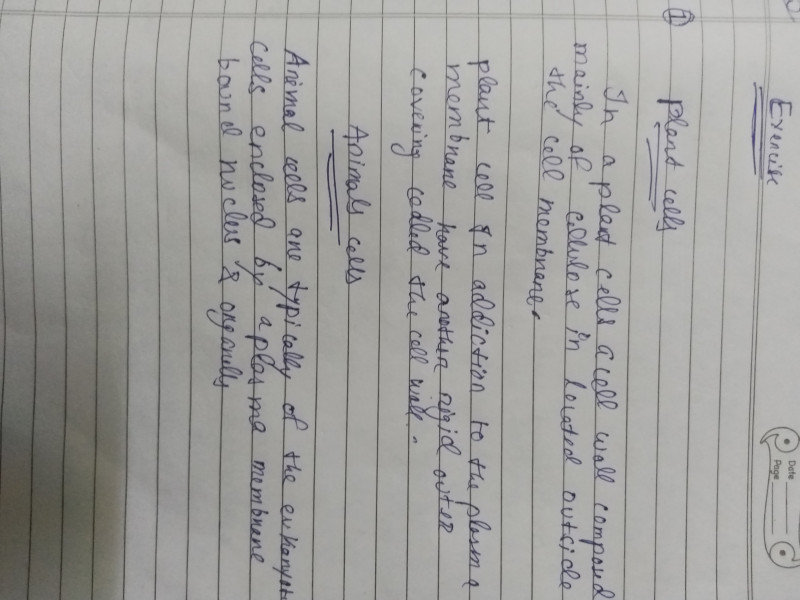 Date
Page
Exercise
① plant cells
In a plant cells a cell wall compound
mainly of cellulose in located outside
the cell membrane.
plant cell In addiction to the plasma
membrane have another rigid outer
covering called the cell wall.
Animals cells
Animal cells are typically of the eukaryot
cells enclosed by a plasma membrane
bound nucleus & organells